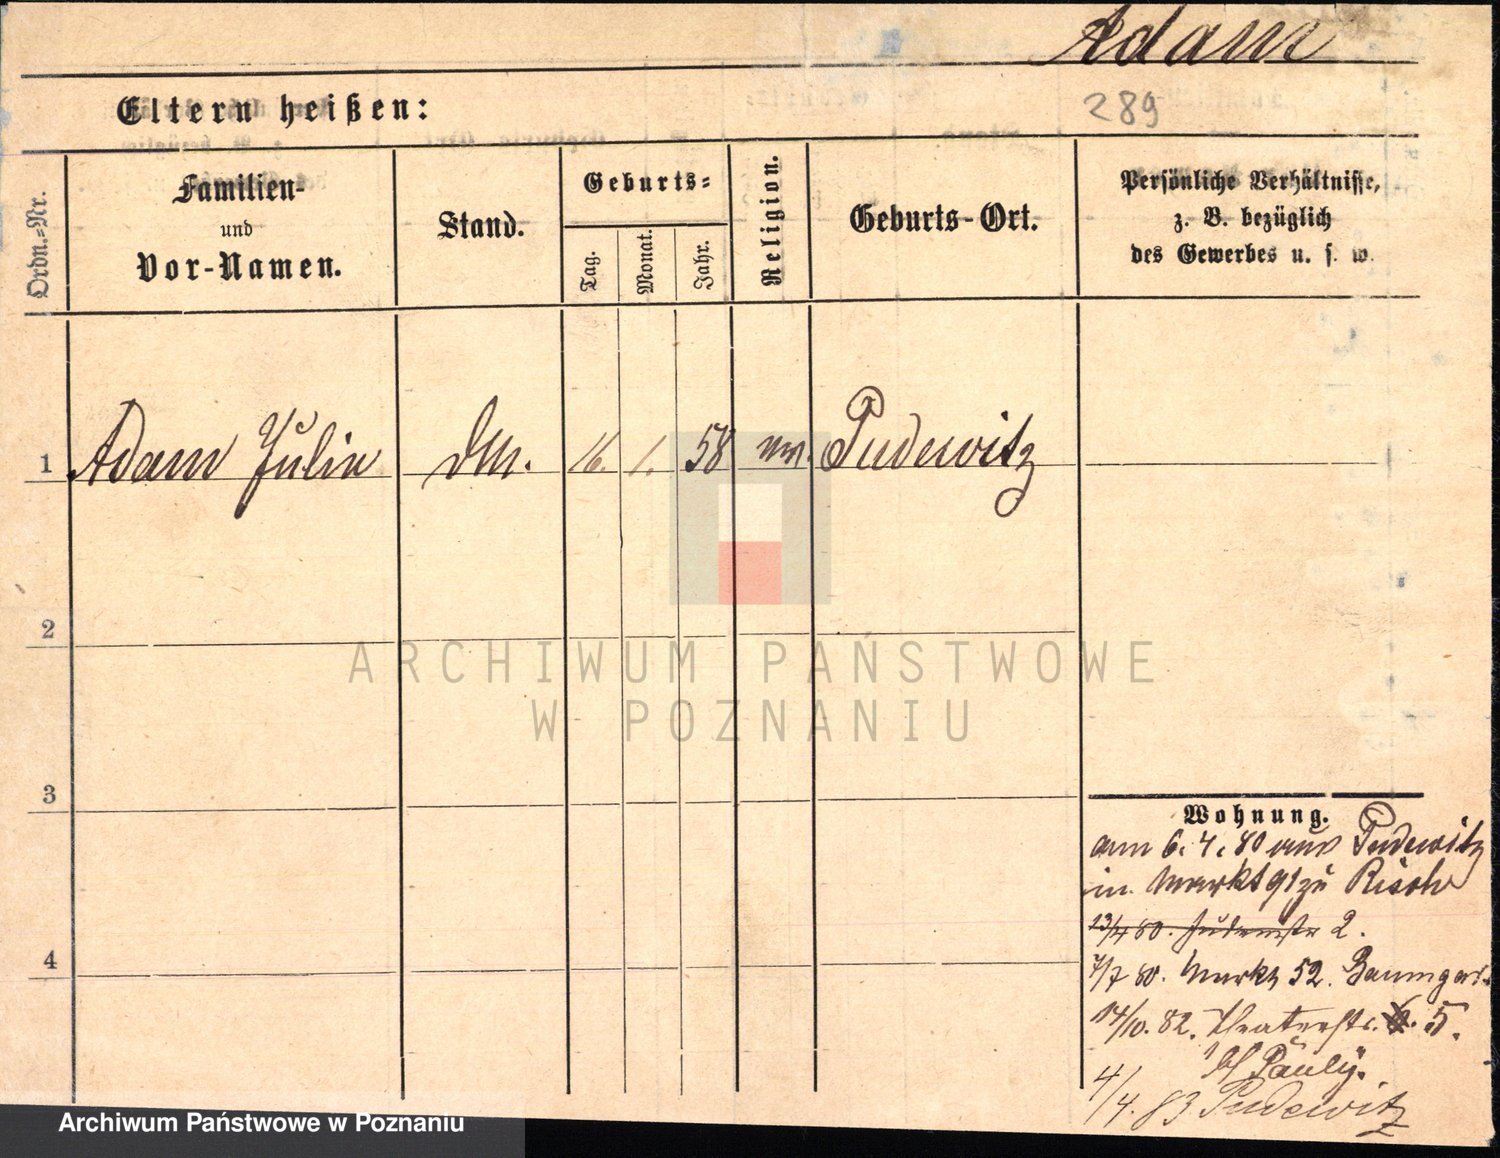 Adam
289
Eltern heißen:
Ordn.=Nr.
Familien-
und
Vor-Namen.
Stand.
Geburts=
Tag.
Monat.
Jahr.
Religion.
Geburts-Ort.
Persönliche Verhältnisse,
z. B. bezüglich
des Gewerbes u. s. w.
1 Adam 16. 1. 58 Pudewitz
2
ARCHIWUM PAŃSTWOWE
W POZNANIU
3
4
Wohnung.
am 6. 4. 80 aus Pudewitz
in Markt 91 zu
13/4 80. Judenstr 2.
7/7 80. Markt 52.
14/10. 82. Theaterstr. 5.
Pauly.
4/4. 83 Pudewitz
Archiwum Państwowe w Poznaniu